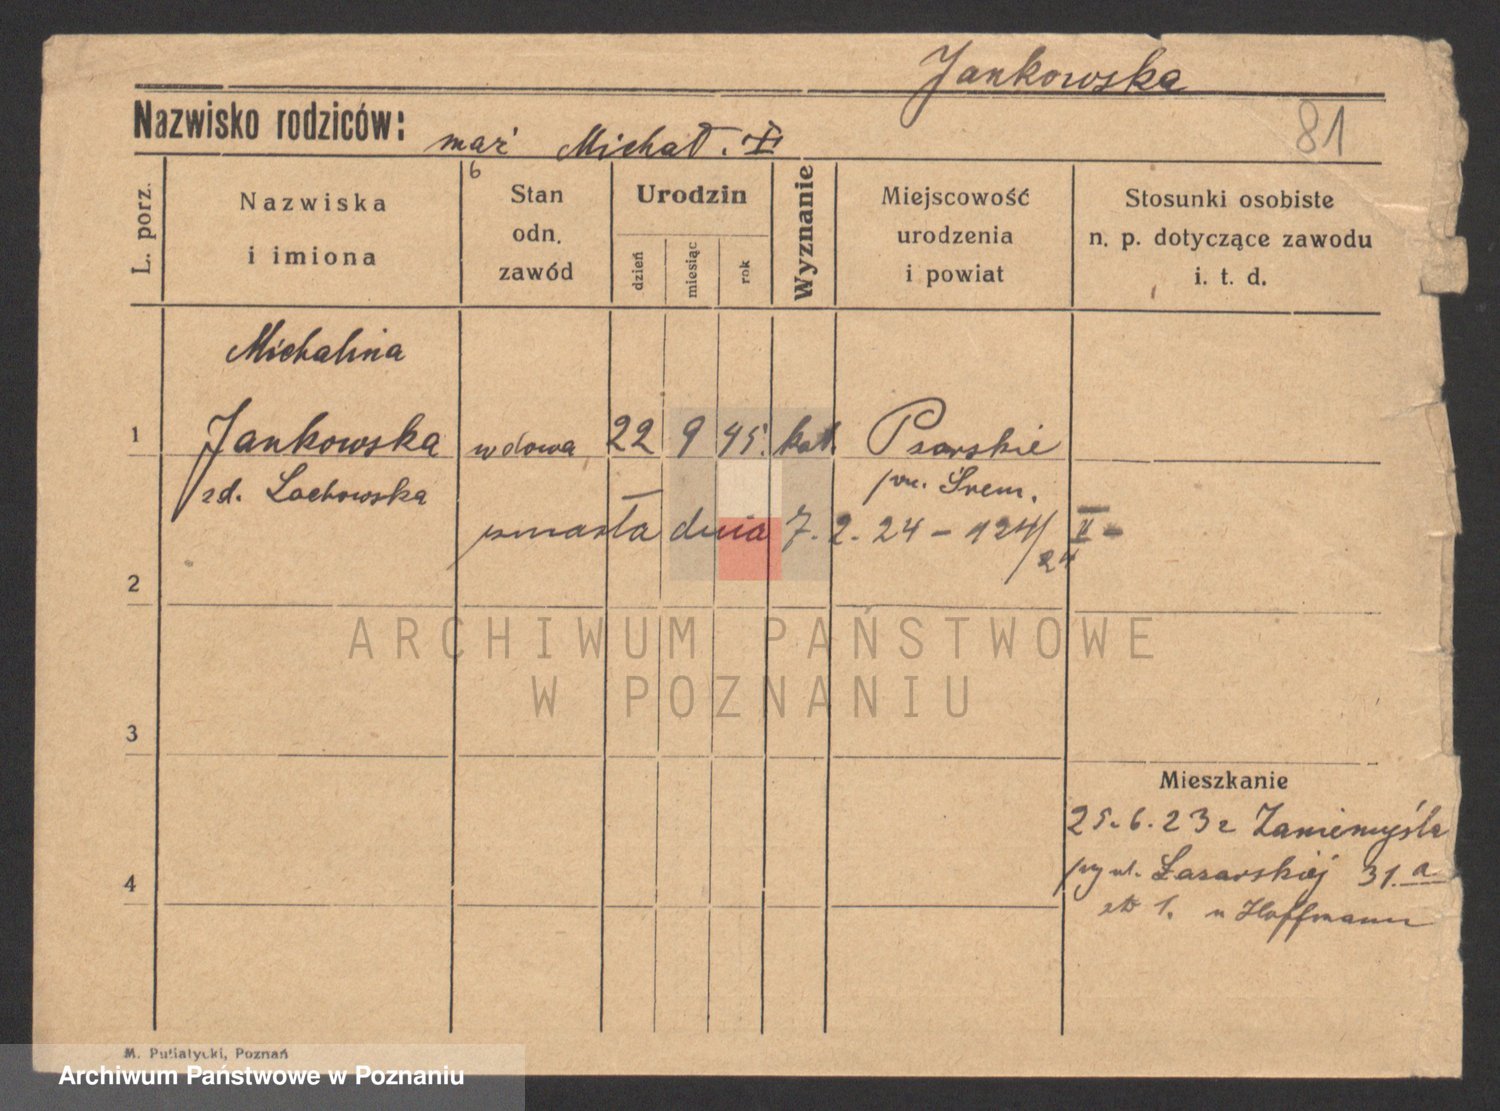 Jankowska
81
Nazwisko rodziców: mąż Michał. I
L. porz.
Nazwiska
i imiona
6
Stan
odn.
zawód
Urodzin
dzień
miesiąc
rok
Wyznanie
Miejscowość
urodzenia
i powiat
Stosunki osobiste
n. p. dotyczące zawodu
i. t. d.
Michalina
1 Jankowska wdowa 22 9 45. kat. Psarskie
zd. Lachowska pow. Śrem.
zmarła dnia 7. 2. 24 - 124/24 II -
2
ARCHIWUM PAŃSTWOWE
W POZNANIU
3
Mieszkanie
25. 6. 23 z Zaniemyśla
przy ul. Łazarskiej 31. a
I. u Hoffmann
4
M. Putiatycki, Poznań
Archiwum Państwowe w Poznaniu